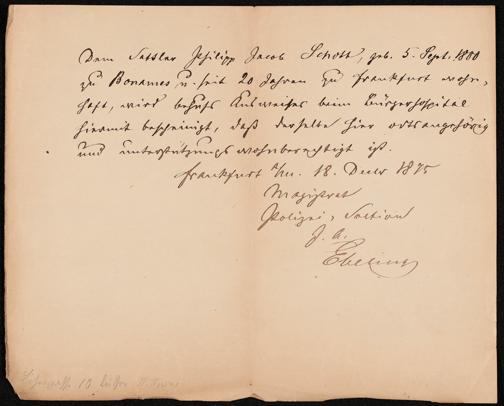 Dem Sattler Philipp Jacob Schott, geb. 5. Sept. 1800
zu Bonames u. seit 20 Jahren zu Frankfurt wohn-
haft, wird behufs Ausweises beim Bürgerhospital
hiermit bescheinigt, daß derselbe hier ortsangehörig
und unterstützungswohnberechtigt ist.
Frankfurt a/m. 18. Decbr 1875
Magistrat
Polizei-Section
J. A.
Ebeling
10